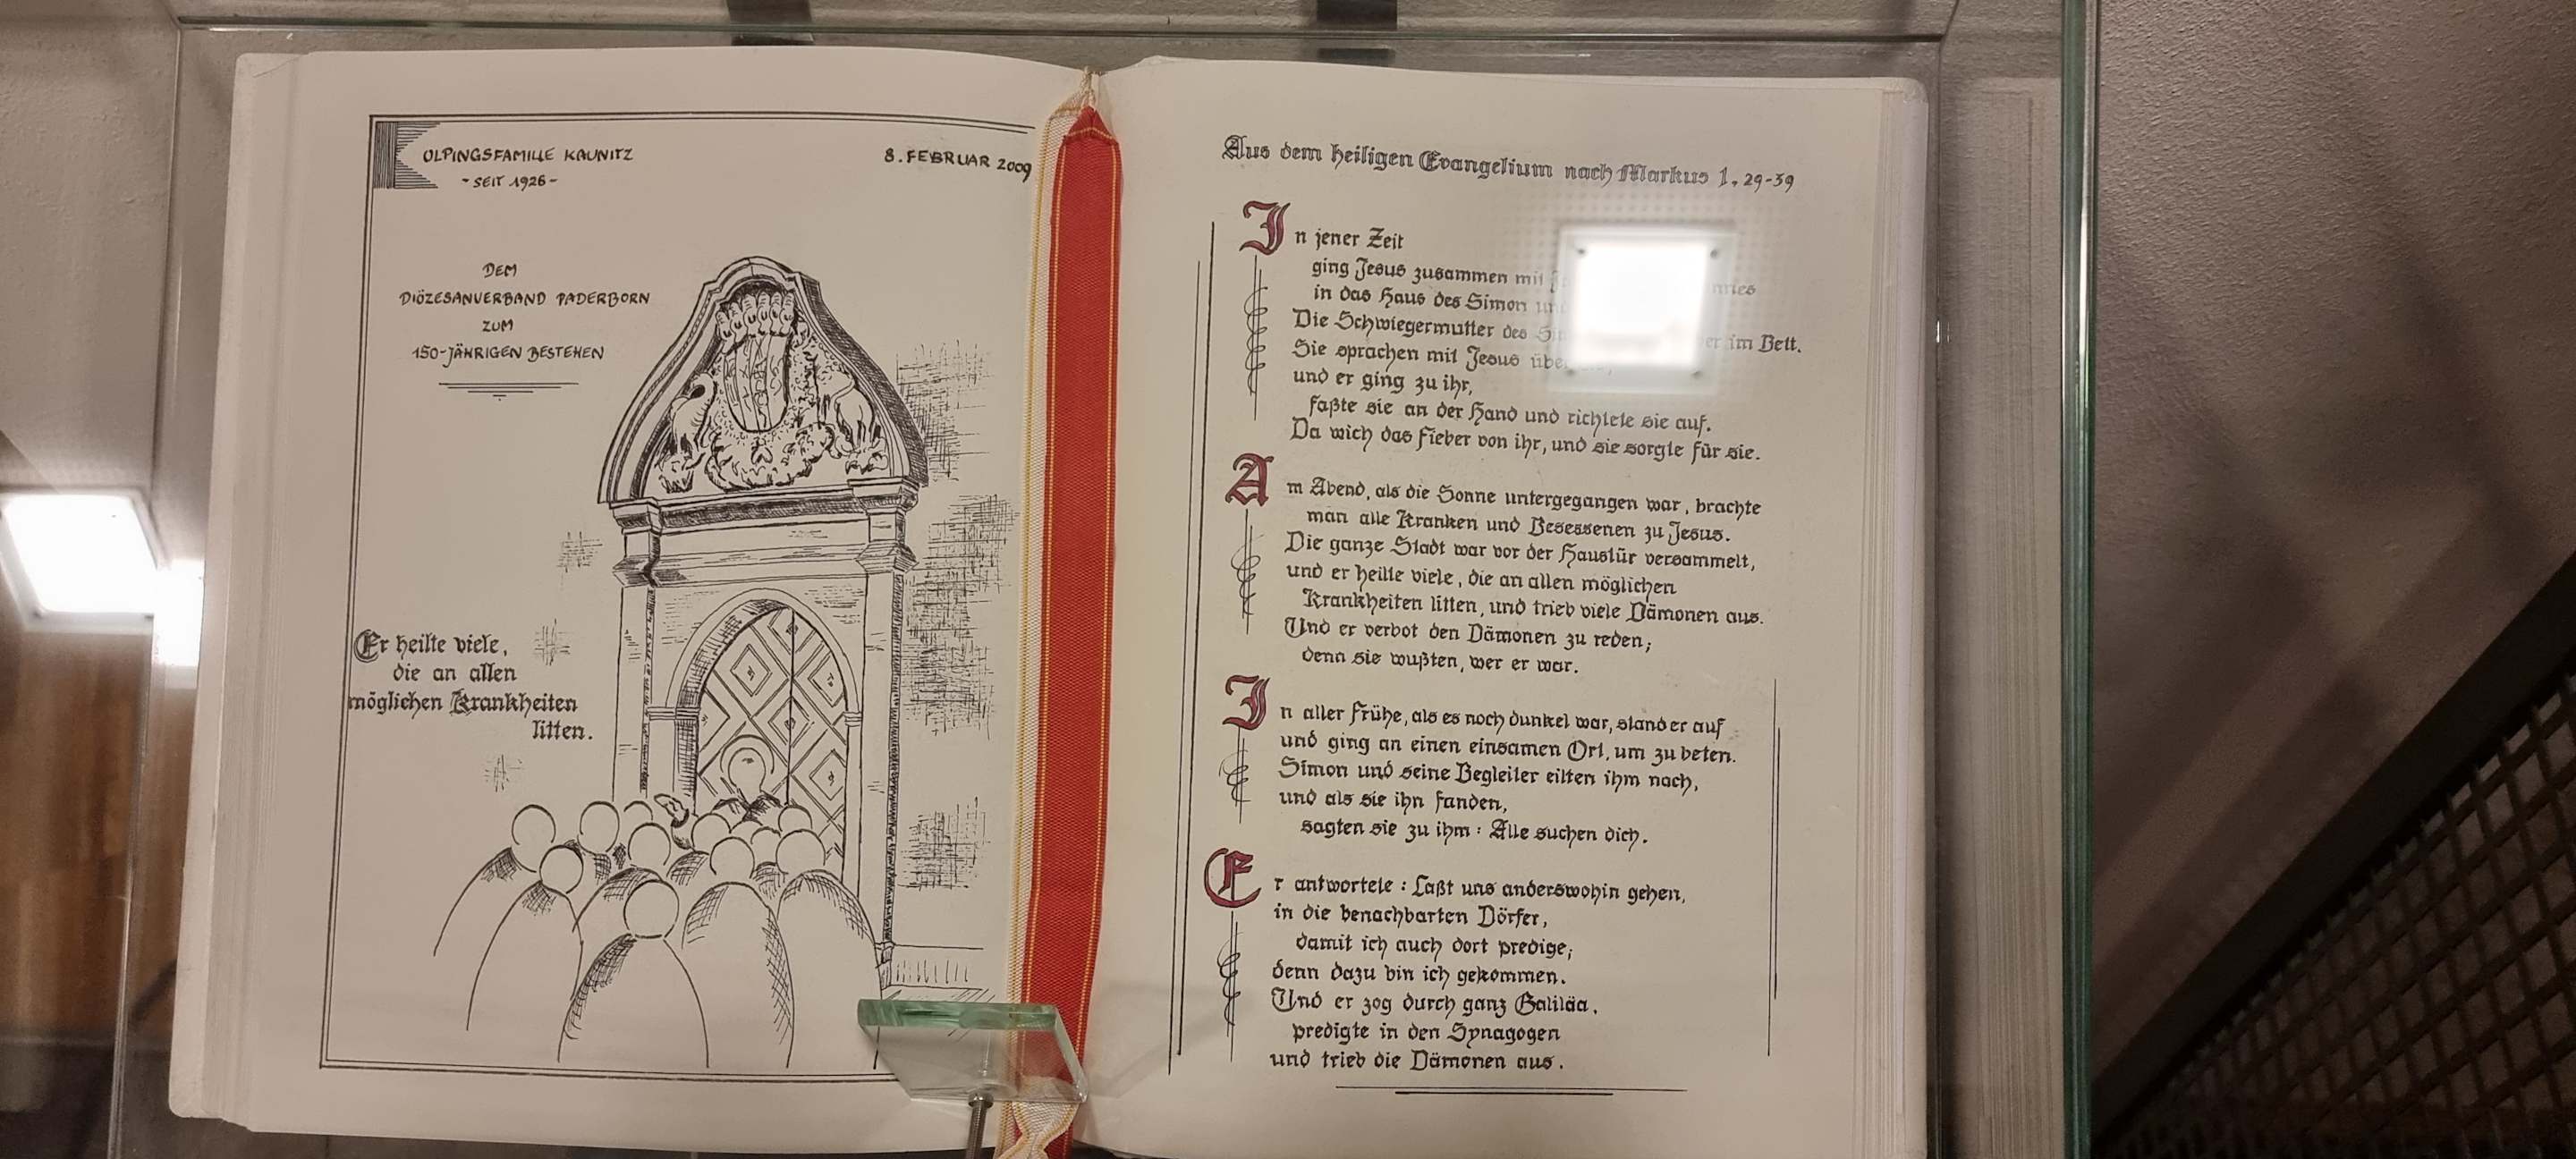 OLPINGSFAMILIE KAUNITZ
- SEIT 1926 -
8. FEBRUAR 2009
DEM
DIÖZESANVERBAND PADERBORN
ZUM
150-JÄHRIGEN BESTEHEN
Er heilte viele,
die an allen
möglichen Krankheiten
litten.
Aus dem heiligen Evangelium nach Markus 1, 29-39
In jener Zeit
ging Jesus zusammen mit
in das Haus des Simon und
Die Schwiegermutter des im Bett.
Sie sprachen mit Jesus über
und er ging zu ihr,
faßte sie an der Hand und richtete sie auf.
Da wich das Fieber von ihr, und sie sorgte für sie.
Am Abend, als die Sonne untergegangen war, brachte
man alle Kranken und Besessenen zu Jesus.
Die ganze Stadt war vor der Haustür versammelt,
und er heilte viele, die an allen möglichen
Krankheiten litten, und trieb viele Dämonen aus.
Und er verbot den Dämonen zu reden;
denn sie wußten, wer er war.
In aller Frühe, als es noch dunkel war, stand er auf
und ging an einen einsamen Ort, um zu beten.
Simon und seine Begleiter eilten ihm nach,
und als sie ihn fanden,
sagten sie zu ihm: Alle suchen dich.
Er antwortete: Laßt uns anderswohin gehen,
in die benachbarten Dörfer,
damit ich auch dort predige;
denn dazu bin ich gekommen.
Und er zog durch ganz Galiläa,
predigte in den Synagogen
und trieb die Dämonen aus.